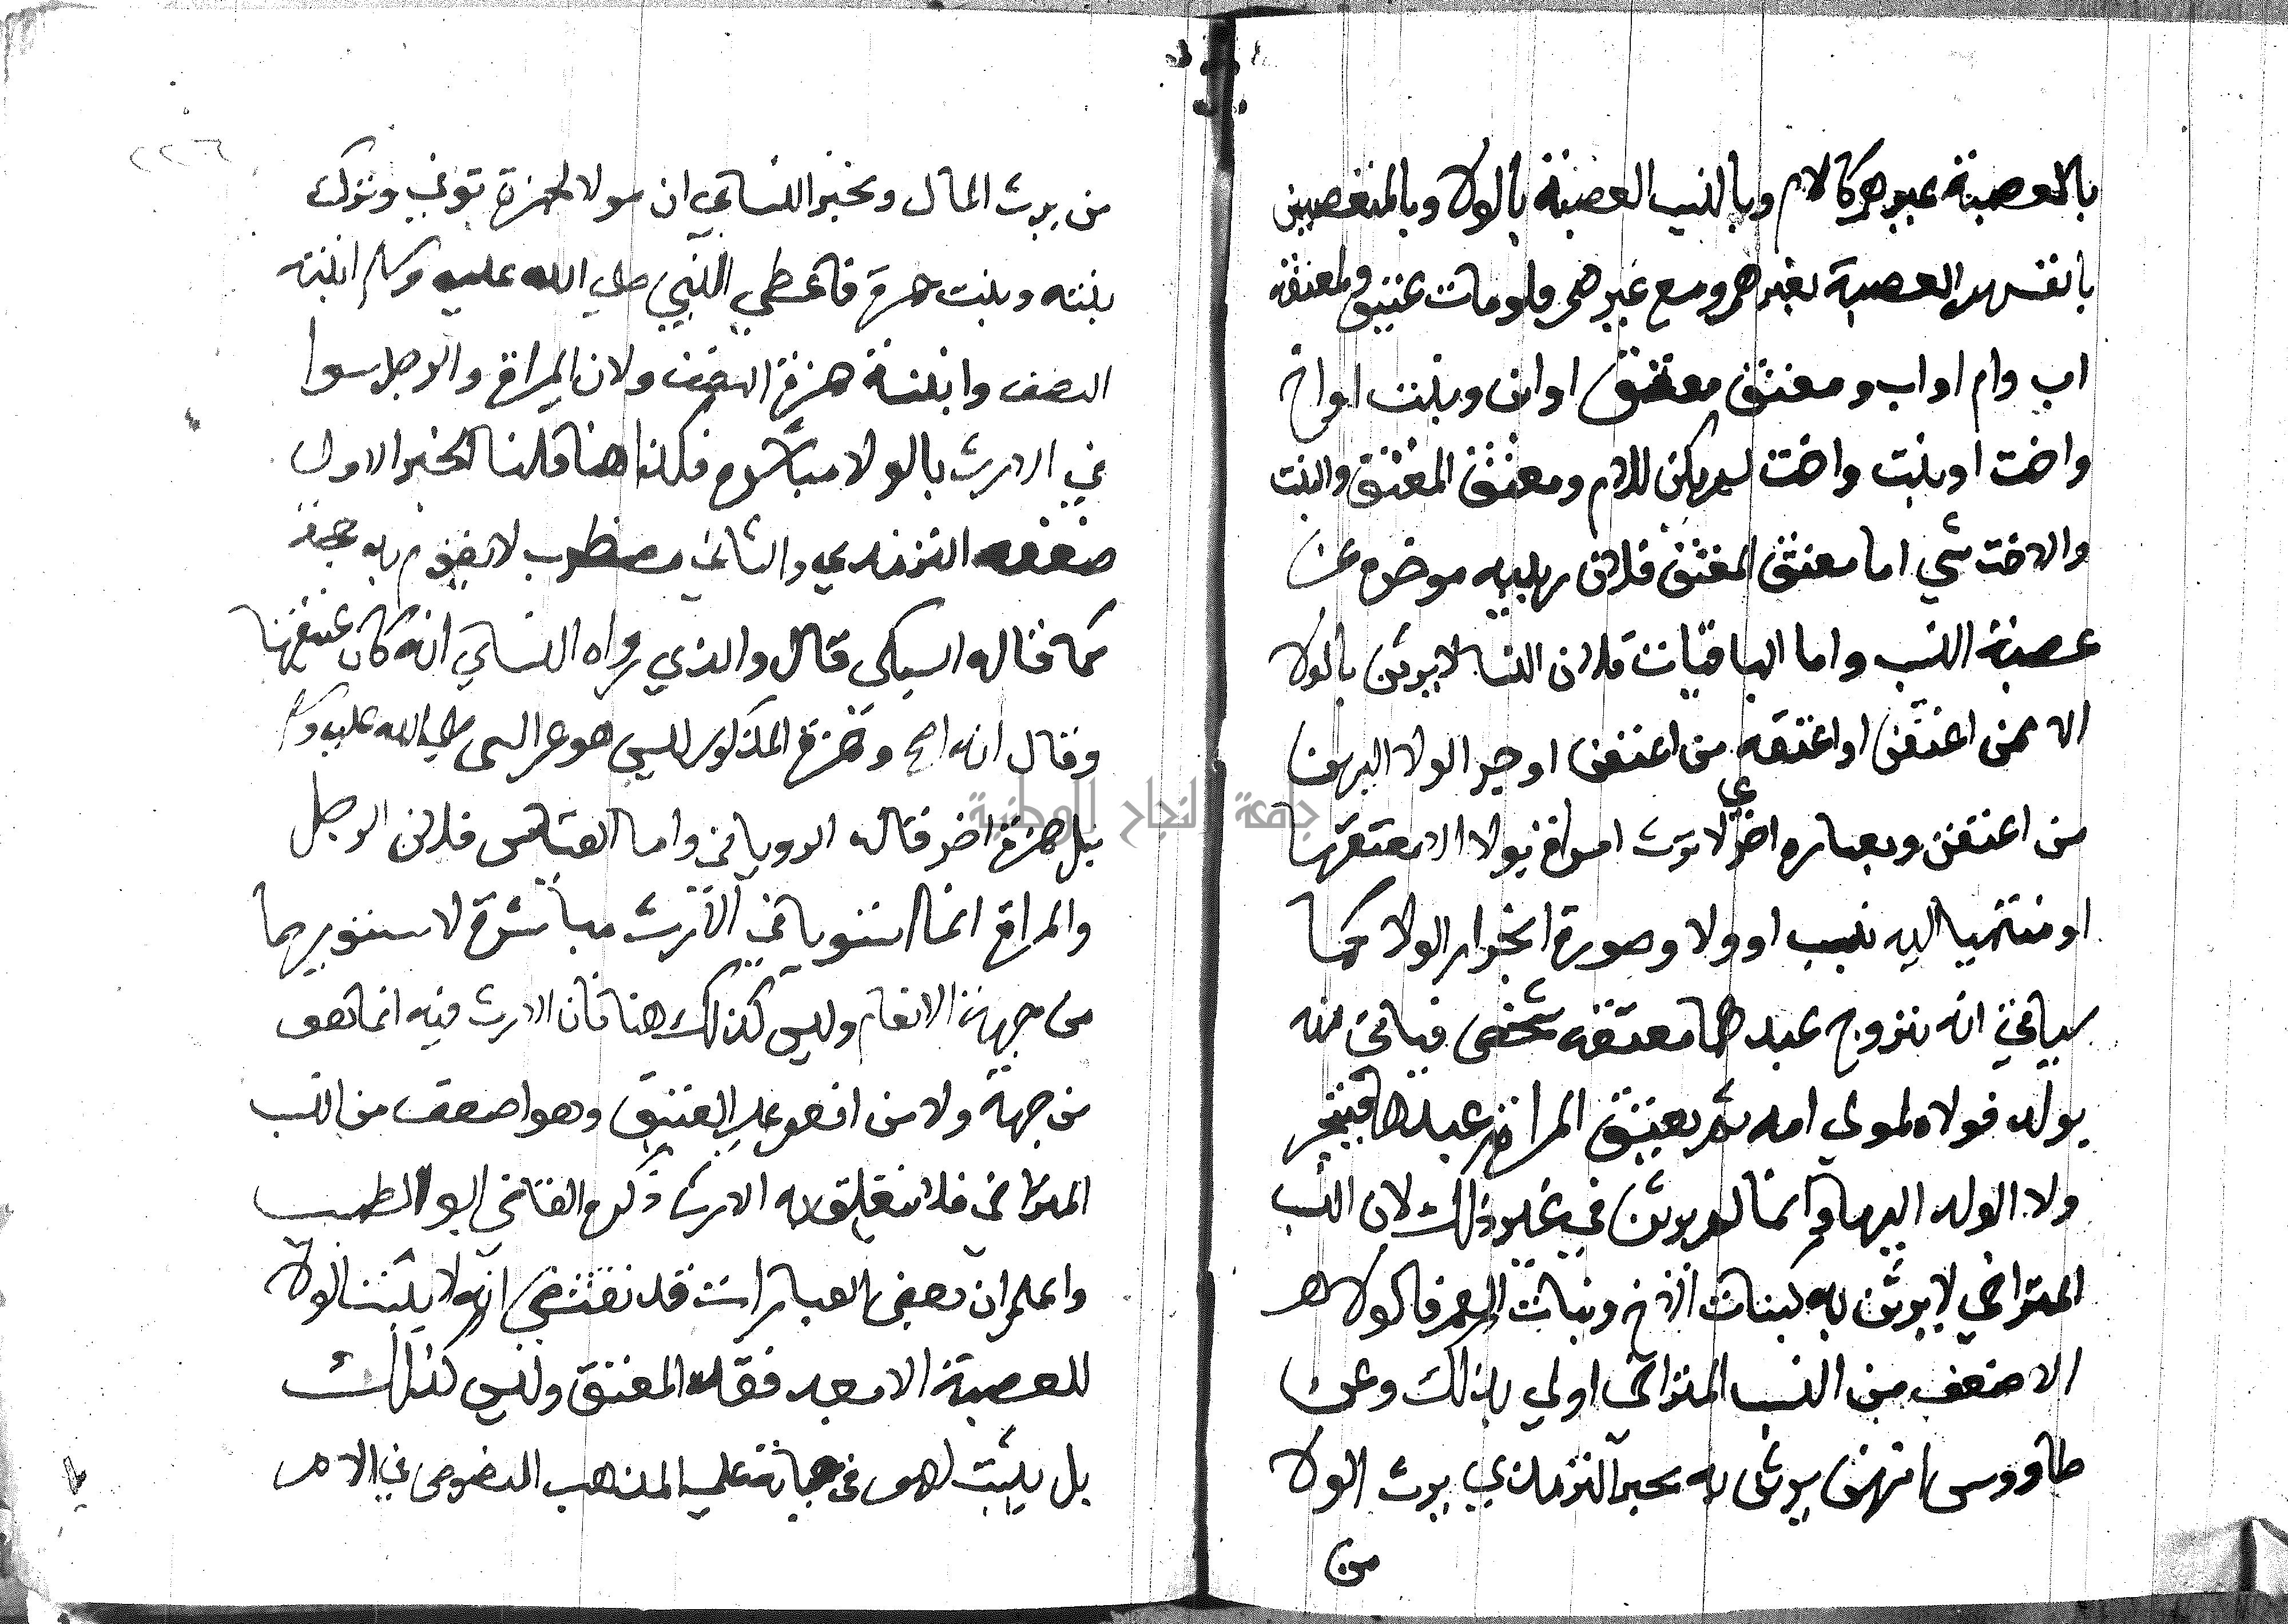 بالعصبة غيرهم كالام وبالنسب العصبة بالولا وبالمتعصبين
بانفسهم العصبة بغيرهم ومع غيرهم فلو مات عتيق ولمعتقه
اب وام او اب ومعتق معتق او ابن وبنت او اخ
واخت او بنت واخت لم يكن للام ومعتق المعتق والبنت
والاخت شي اما معتق المعتق فلان رتبته موخره عن
عصبة النسب واما الباقيات فلان النسا لا يرثن بالولا
الا ممن اعتقن او اعتقه من اعتقن او جر الولا اليهن
من اعتقن وبعباره اخري لا ترث امراة بولا الا معتقها
او منتميا اليه بنسب او ولا وصورة انجرار الولا كما
سياتي انه يتزوج عبدها معتقه شخص فياتي منه
بولد فولاه لمولي امه ثم يعتق المراة عبدها فينجر
ولا الولد اليها وانما لم يرثن في غير ذلك لان النسب
المتراخي لا يرثن به كبنات الاخ وبنات العم فالولا
الاضعف من النسب المتراخي اولي بذلك وعن
طاووس انهن يرثن به بخبر الترمذي يرث الولا
من
٢٢٦
من يرث المال وبخبر النساي ان مولا لحمزة توفي وترك
بنته وبنت حمزة فاعطي النبي صلي الله عليه وسلم ابنته
النصف وابنة حمزة النصف ولان المراة والرجل سوا
في الارث بالولا مباشرة فكذا هنا قلنا الخبر الاول
ضعفه الترمذي والثاني مضطرب لا يقوم به حجة
كما قاله السبكي قال والذي رواه النساي انه كان عتيقها
وقال انه اصح وحمزة المذكور ليس هو عم النبي صلي الله عليه وسلم
بل حمزة اخر قاله الروياني واما القياس فلان الرجل
والمراة انما استويا في الارث مباشرة لاستوايهما
من جهة الانعام وليس كذلك هنا فان الارث فيه انما هو
من جهة ولا من انعم علي العتيق وهو اضعف من النسب
المتراخي فلا يتعلق به الارث ذكره القاضي ابو الطيب
واعلم ان بعض العبارات قد تقتضي انه لا يثبت الولا
للعصبة الا بعد فقد المعتق وليس كذلك
بل يثبت لهم في حياته علي المذهب المنصوص في الام
جامعة النجاح الوطنية